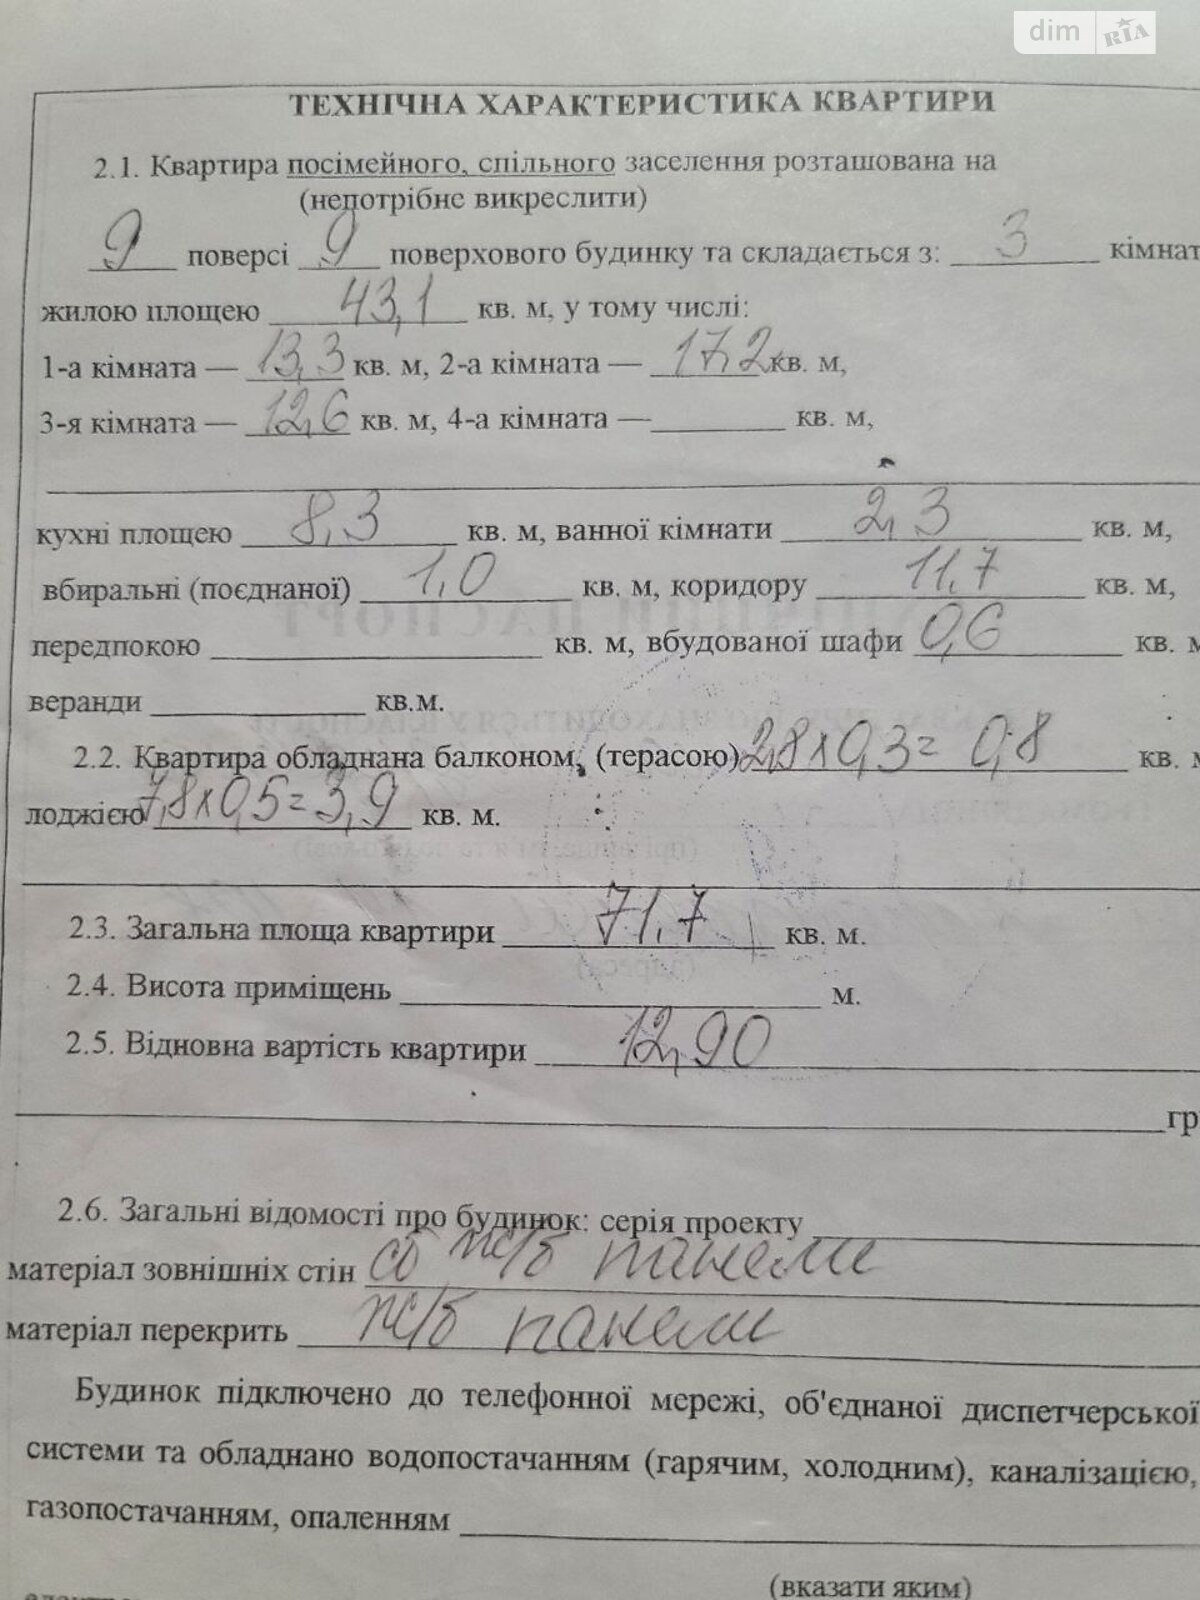 dim RIA
ТЕХНІЧНА ХАРАКТЕРИСТИКА КВАРТИРИ
2.1. Квартира посімейного, спільного заселення розташована на
(непотрібне викреслити)
9 поверсі 9 поверхового будинку та складається з: 3 кімнат
жилою площею 43,1 кв. м, у тому числі:
1-а кімната — 13,3 кв. м, 2-а кімната — 17,2 кв. м,
3-я кімната — 12,6 кв. м, 4-а кімната — кв. м,
кухні площею 8,3 кв. м, ванної кімнати 2,3 кв. м,
вбиральні (поєднаної) 1,0 кв. м, коридору 11,7 кв. м,
передпокою кв. м, вбудованої шафи 0,6 кв. м
веранди кв.м.
2.2. Квартира обладнана балконом, (терасою) 2,8х0,3= 0,8 кв. м
лоджією 7,8х0,5=3,9 кв. м.
2.3. Загальна площа квартири 71,7 кв. м.
2.4. Висота приміщень м.
2.5. Відновна вартість квартири 12,90
гр
2.6. Загальні відомості про будинок: серія проекту
матеріал зовнішніх стін сб ж/б панели
матеріал перекрить ж/б панели
Будинок підключено до телефонної мережі, об'єднаної диспетчерської
системи та обладнано водопостачанням (гарячим, холодним), каналізацією,
газопостачанням, опаленням
(вказати яким)